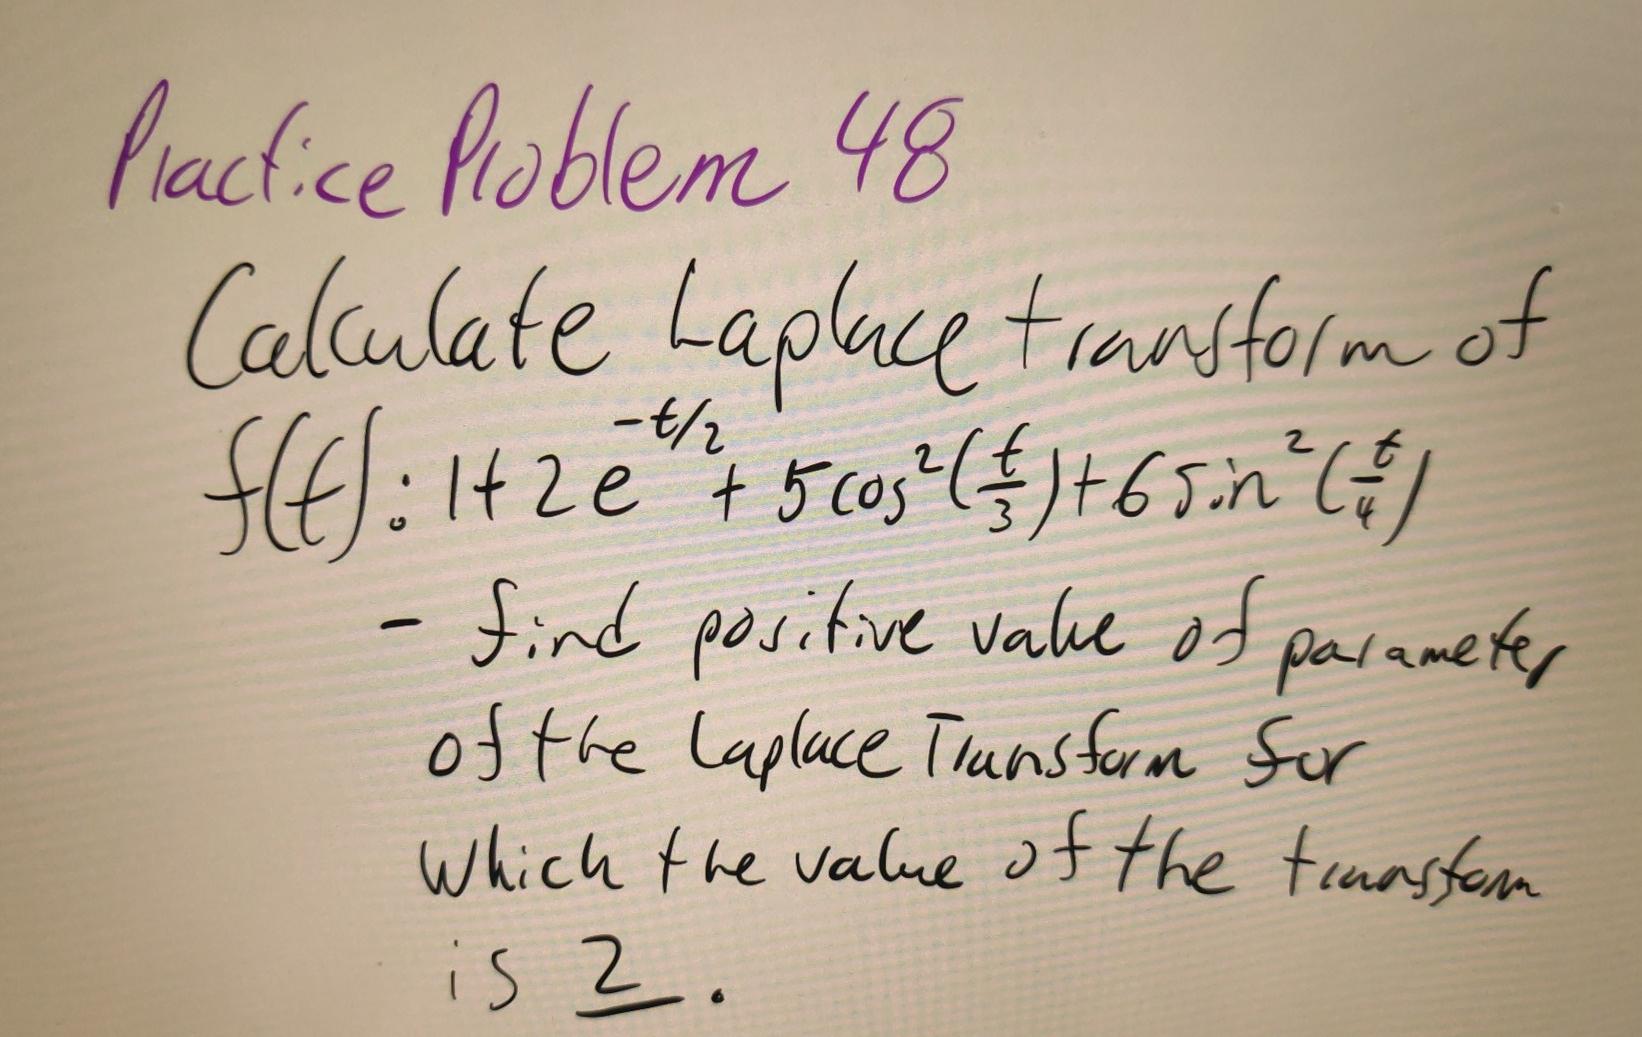 Practice Problem 48
Calculate Laplace transform of
f(t): 1+2e^{-t/2} + 5cos²(t/3)+6sin²(t/4)
- find positive value of parameter
of the Laplace Transform for
which the value of the transform
is 2.